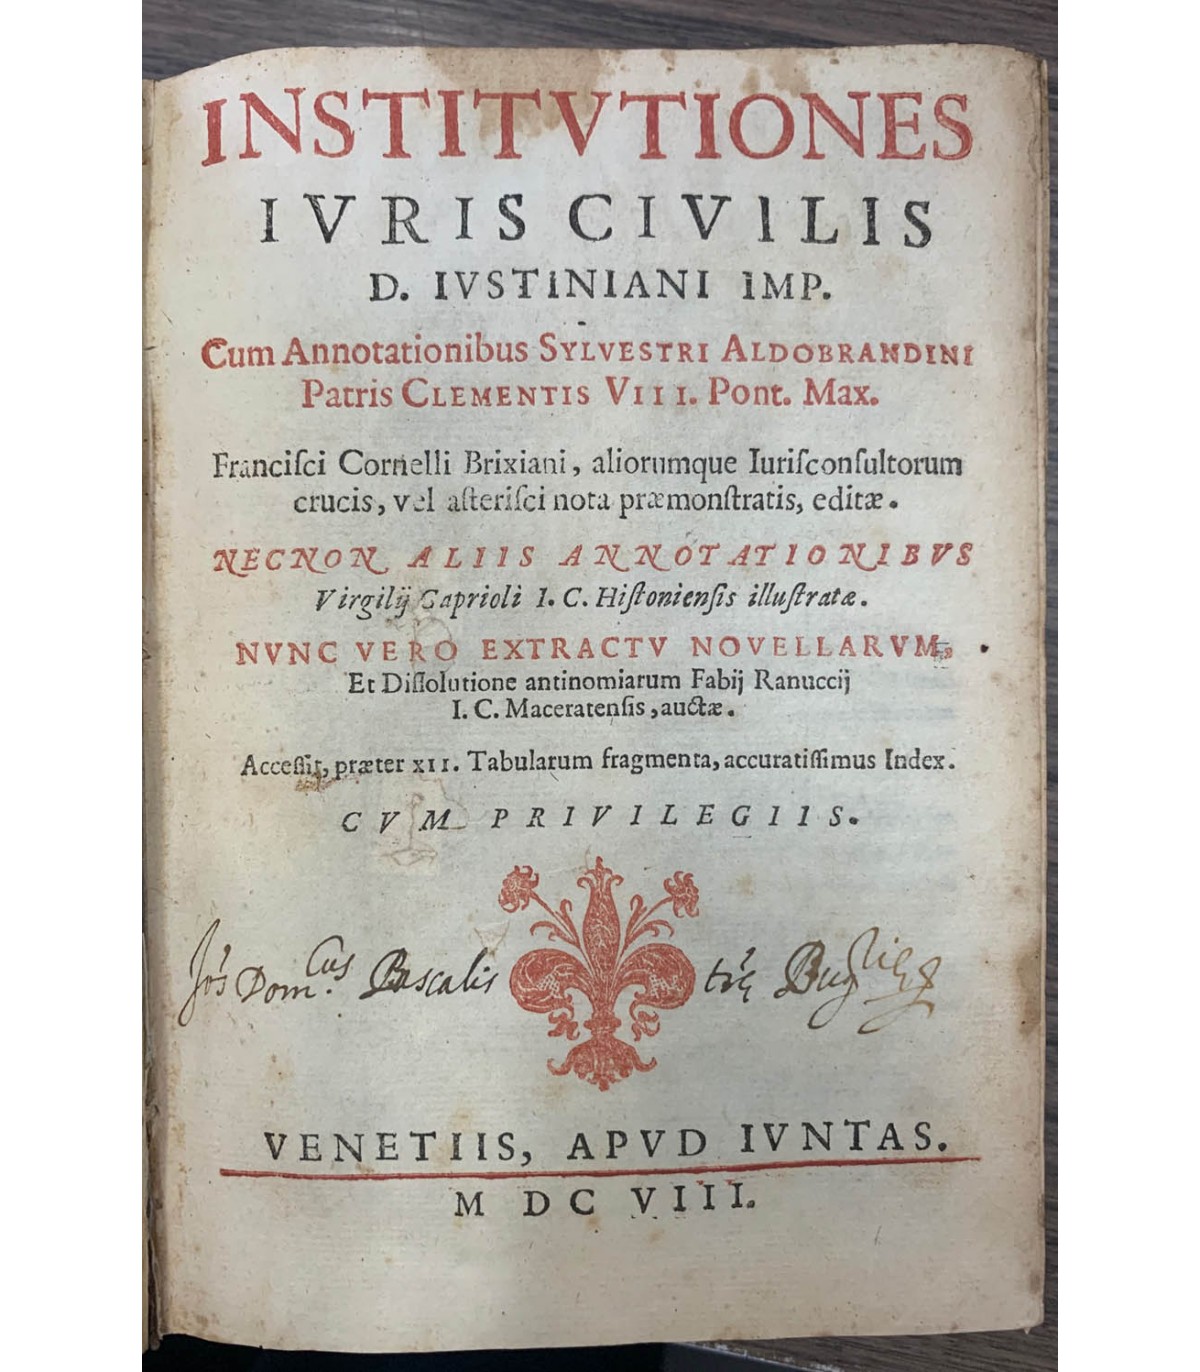 INSTITVTIONES
IVRIS CIVILIS
D. IVSTINIANI IMP.
Cum Annotationibus SYLVESTRI ALDOBRANDINI
Patris CLEMENTIS VIII. Pont. Max.
Franciſci Cornelli Brixiani, aliorumque Iuriſconſultorum
crucis, vel aſteriſci nota præmonſtratis, editæ.
NECNON ALIIS ANNOTATIONIBVS
Virgilij Caprioli I. C. Hiſtonienſis illuſtratæ.
NVNC VERO EXTRACTV NOVELLARVM,
Et Diſſolutione antinomiarum Fabij Ranuccij
I. C. Maceratenſis, auctæ.
Acceſſit, præter XII. Tabularum fragmenta, accuratiſſimus Index.
CVM PRIVILEGIIS.
Dom.cus Pascalis
VENETIIS, APVD IVNTAS.
M DC VIII.